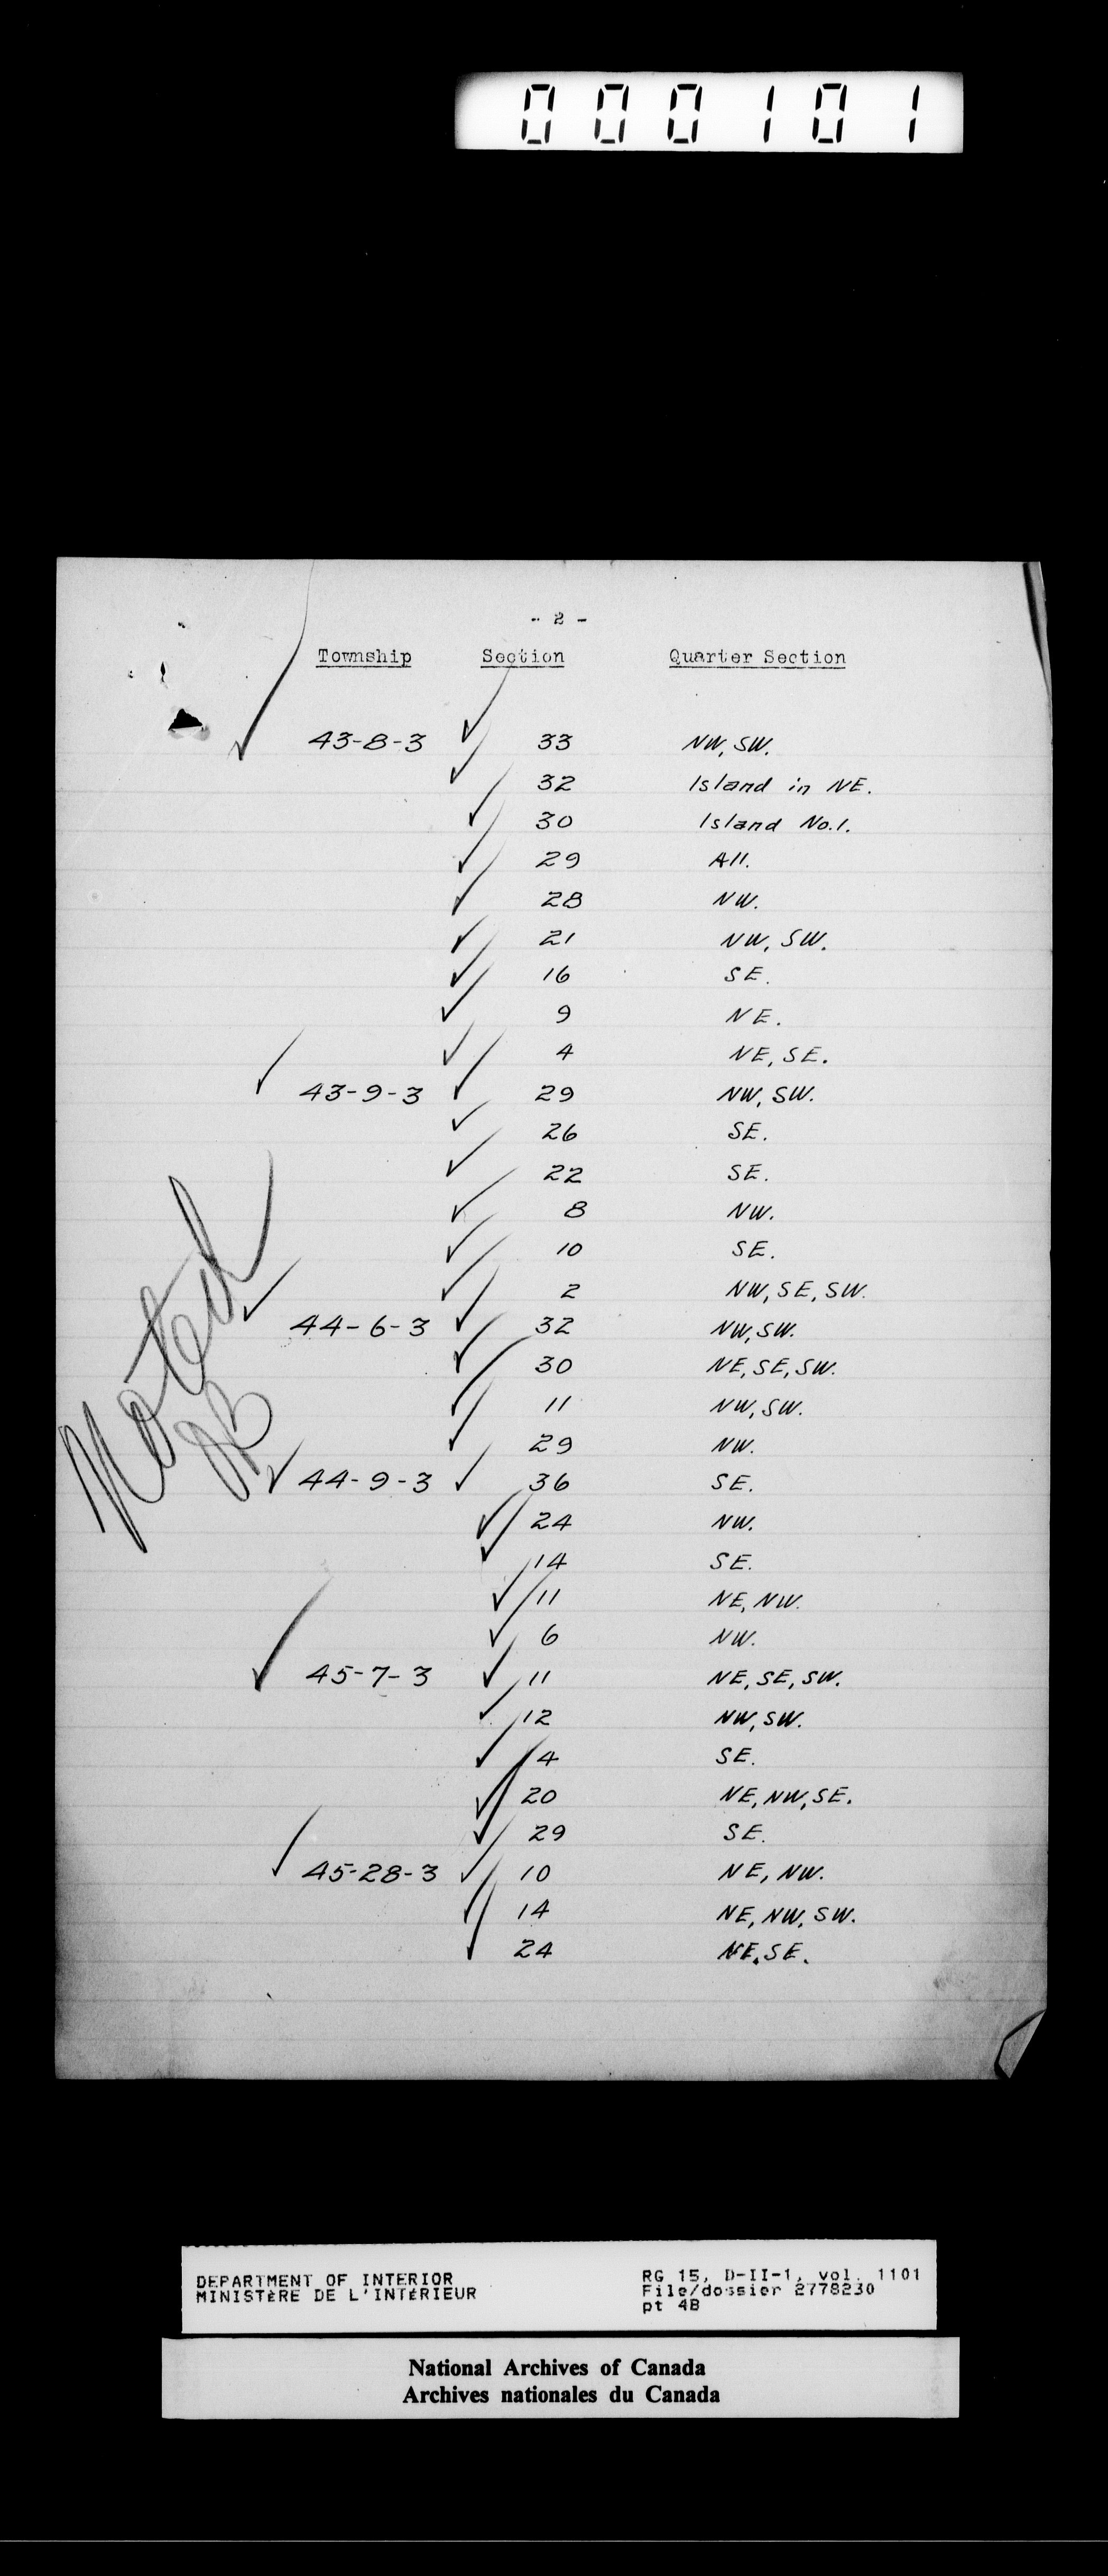 000101
- 2 -
Township Section Quarter Section
43-8-3 33 NW, SW.
32 Island in NE.
30 Island No.1.
29 All.
28 NW.
21 NW, SW.
16 SE.
9 NE.
4 NE, SE.
43-9-3 29 NW, SW.
26 SE.
22 SE.
8 NW.
10 SE.
2 NW, SE, SW.
44-6-3 32 NW, SW.
30 NE, SE, SW.
11 NW, SW.
29 NW.
44-9-3 36 SE.
24 NW.
14 SE.
11 NE, NW.
6 NW.
45-7-3 11 NE, SE, SW.
12 NW, SW.
4 SE.
20 NE, NW, SE.
29 SE.
45-28-3 10 NE, NW.
14 NE, NW, SW.
24 NE. SE.
Noted
DEPARTMENT OF INTERIOR
MINISTÈRE DE L'INTÉRIEUR
RG 15, D-II-1, vol. 1101
File/dossier 2778230
pt 4B
National Archives of Canada
Archives nationales du Canada